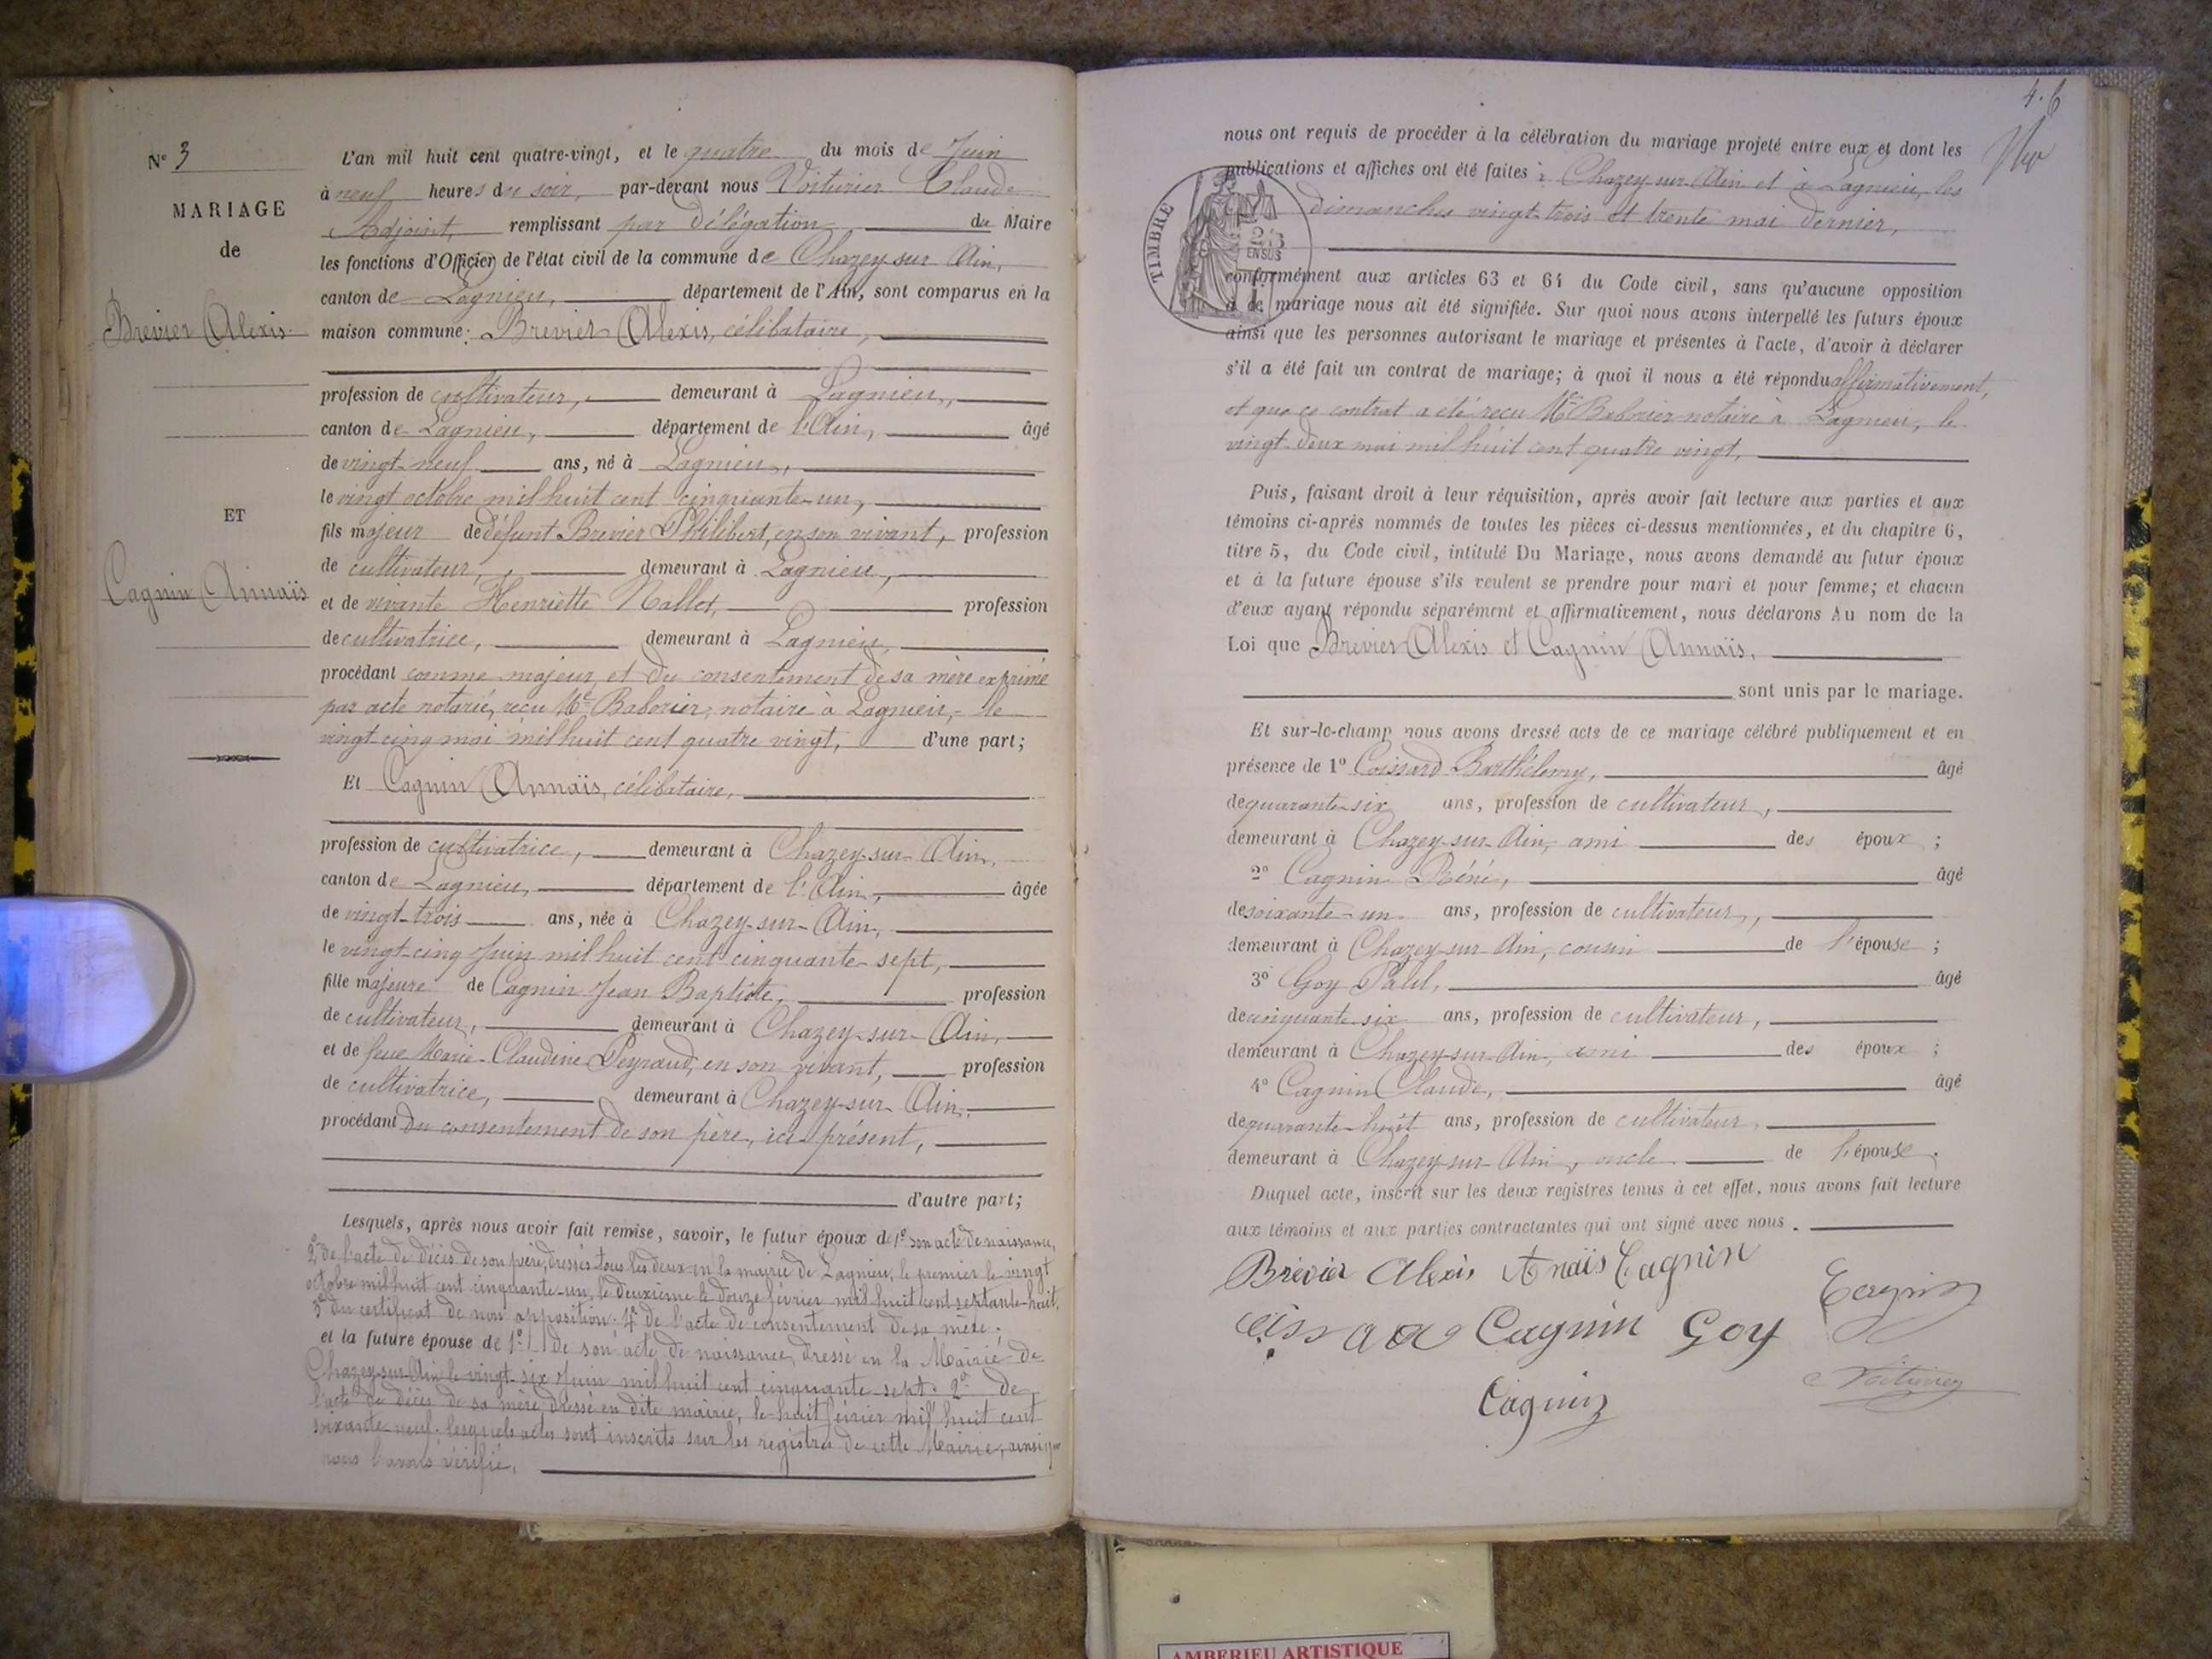 N° 3
MARIAGE
de
Brevier Alexis
ET
Cagnin Annaïs
L'an mil huit cent quatre-vingt, et le quatre du mois de Juin
à neuf heures du soir, par-devant nous Voiturier Claude
Adjoint, remplissant par délégation du Maire
les fonctions d'Officier de l'état civil de la commune de Chazey sur Ain,
canton de Lagnieu, département de l'Ain, sont comparus en la
maison commune: Brevier Alexis, célibataire,
profession de cultivateur, demeurant à Lagnieu,
canton de Lagnieu, département de l'Ain, âgé
de vingt-neuf ans, né à Lagnieu,
le vingt octobre mil huit cent cinquante-un,
fils majeur de défunt Brevier Philibert, en son vivant, profession
de cultivateur, demeurant à Lagnieu,
et de vivante Henriette Nallet, profession
de cultivatrice, demeurant à Lagnieu,
procédant comme majeur, et du consentement de sa mère exprimé
par acte notarié, reçu Me Baborier, notaire à Lagnieu, le
vingt-cinq mai mil huit cent quatre vingt, d'une part;
Et Cagnin Annaïs, célibataire,
profession de cultivatrice, demeurant à Chazey-sur-Ain,
canton de Lagnieu, département de l'Ain, âgée
de vingt-trois ans, née à Chazey-sur-Ain,
le vingt-cinq Juin mil huit cent cinquante-sept,
fille majeure de Cagnin Jean Baptiste, profession
de cultivateur, demeurant à Chazey-sur-Ain,
et de feue Marie-Claudine Peyraud, en son vivant, profession
de cultivatrice, demeurant à Chazey-sur-Ain,
procédant du consentement de son père, ici présent,
d'autre part;
Lesquels, après nous avoir fait remise, savoir, le futur époux de 1° son acte de naissance,
2° de l'acte de décès de son père, dressés tous les deux en la mairie de Lagnieu, le premier le vingt
octobre mil huit cent cinquante-un, le deuxième le douze février mil huit cent septante-huit,
3° du certificat de non opposition; 4° de l'acte de consentement de sa mère;
et la future épouse de 1° de son acte de naissance, dressé en la Mairie de
Chazey-sur-Ain le vingt-six Juin mil huit cent cinquante-sept. 2° de
l'acte de décès de sa mère dressé en dite mairie, le huit février mil huit cent
soixante-neuf. lesquels actes sont inscrits sur les registres de cette Mairie, ainsi que
nous l'avons vérifié.
4.6
nous ont requis de procéder à la célébration du mariage projeté entre eux et dont les
publications et affiches ont été faites à Chazey-sur-Ain et à Lagnieu, les
dimanches vingt-trois et trente mai dernier,
TIMBRE
EN SUS
conformément aux articles 63 et 64 du Code civil, sans qu'aucune opposition
à ce mariage nous ait été signifiée. Sur quoi nous avons interpellé les futurs époux
ainsi que les personnes autorisant le mariage et présentes à l'acte, d'avoir à déclarer
s'il a été fait un contrat de mariage; à quoi il nous a été répondu affirmativement,
et que ce contrat a été reçu Me Baborier notaire à Lagnieu, le
vingt-deux mai mil huit cent quatre vingt,
Puis, faisant droit à leur réquisition, après avoir fait lecture aux parties et aux
témoins ci-après nommés de toutes les pièces ci-dessus mentionnées, et du chapitre 6,
titre 5, du Code civil, intitulé Du Mariage, nous avons demandé au futur époux
et à la future épouse s'ils veulent se prendre pour mari et pour femme; et chacun
d'eux ayant répondu séparément et affirmativement, nous déclarons Au nom de la
Loi que Brevier Alexis et Cagnin Annaïs,
sont unis par le mariage.
Et sur-le-champ nous avons dressé acte de ce mariage célébré publiquement et en
présence de 1° Coissard Barthélemy, âgé
de quarante-six ans, profession de cultivateur,
demeurant à Chazey-sur-Ain, ami des époux;
2° Cagnin Réné, âgé
de soixante-un ans, profession de cultivateur,
demeurant à Chazey-sur-Ain, cousin de l'épouse;
3° Goy Paul, âgé
de cinquante-six ans, profession de cultivateur,
demeurant à Chazey-sur-Ain, ami des époux;
4° Cagnin Claude, âgé
de quarante-huit ans, profession de cultivateur,
demeurant à Chazey-sur-Ain, oncle de l'épouse.
Duquel acte, inscrit sur les deux registres tenus à cet effet, nous avons fait lecture
aux témoins et aux parties contractantes qui ont signé avec nous.
Brévier Alexis Anaïs Cagnin
Cagnin
Cagnin Goy
Cagnin
AMBERIEU ARTISTIQUE